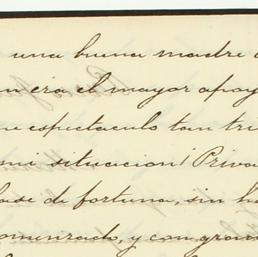 una buena madre
era el mayor apoy
espectaculo tan tri
mi situacion! Priva
ase de fortuna, sin ha
omenzado, y con gran